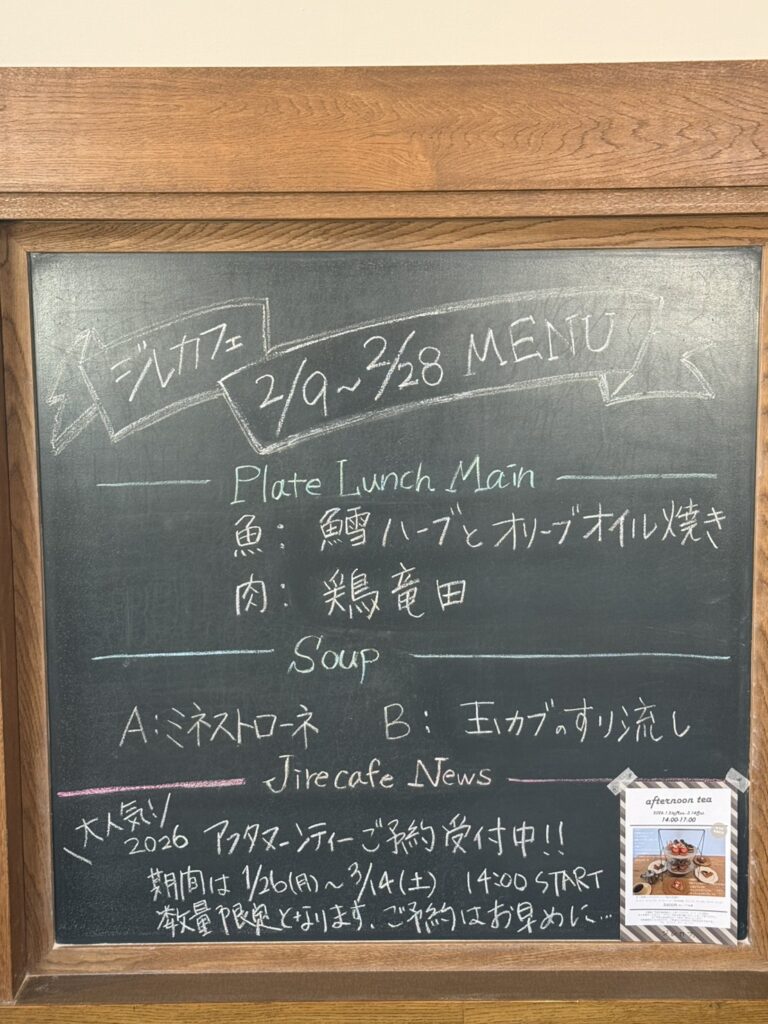 ジルカフェ 2/9〜2/28 MENU
Plate Lunch Main
魚: 鱈ハーブとオリーブオイル焼き
肉: 鶏竜田
Soup
A:ミネストローネ B: 玉カブのすり流し
Jirecafe News
大人気!!
2026 アフタヌーンティーご予約受付中!!
期間は 1/26(月)〜3/14(土) 14:00 START
数量限定となります、ご予約はお早めに…
afternoon tea
14:00-17:00